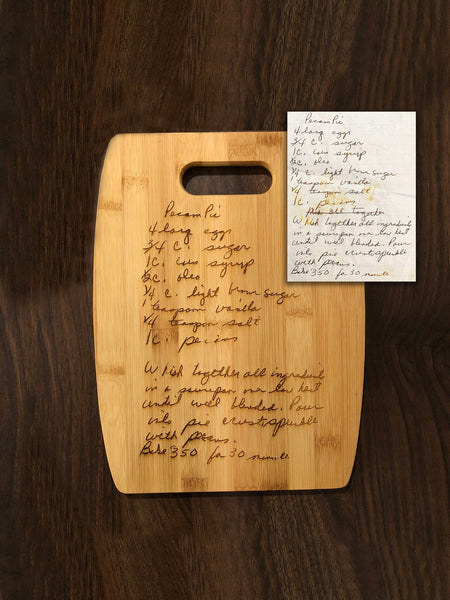 Pecan Pie
4 larg eggs
3/4 C. sugar
1C. Caro syrup
1/2C. oleo
1/4 C. light brown sugar
1 teaspoon vanilla
1/4 teaspoon salt
1C. pecans
Whish together all ingredients
in a saucepan over low heat
until well blended. Pour
into pie crust, sprinkle
with pecans.
Bake 350 for 30 minute
Pecan Pie
4 larg eggs
3/4 C. sugar
1C. Caro syrup
1/2C. oleo
1/4 C. light brown sugar
1 teaspoon vanilla
1/4 teaspoon salt
1C. pecans
Mix all together
Whish together all ingredients
in a saucepan over low heat
until well blended. Pour
into pie crust, sprinkle
with pecans.
Bake 350 for 30 minute